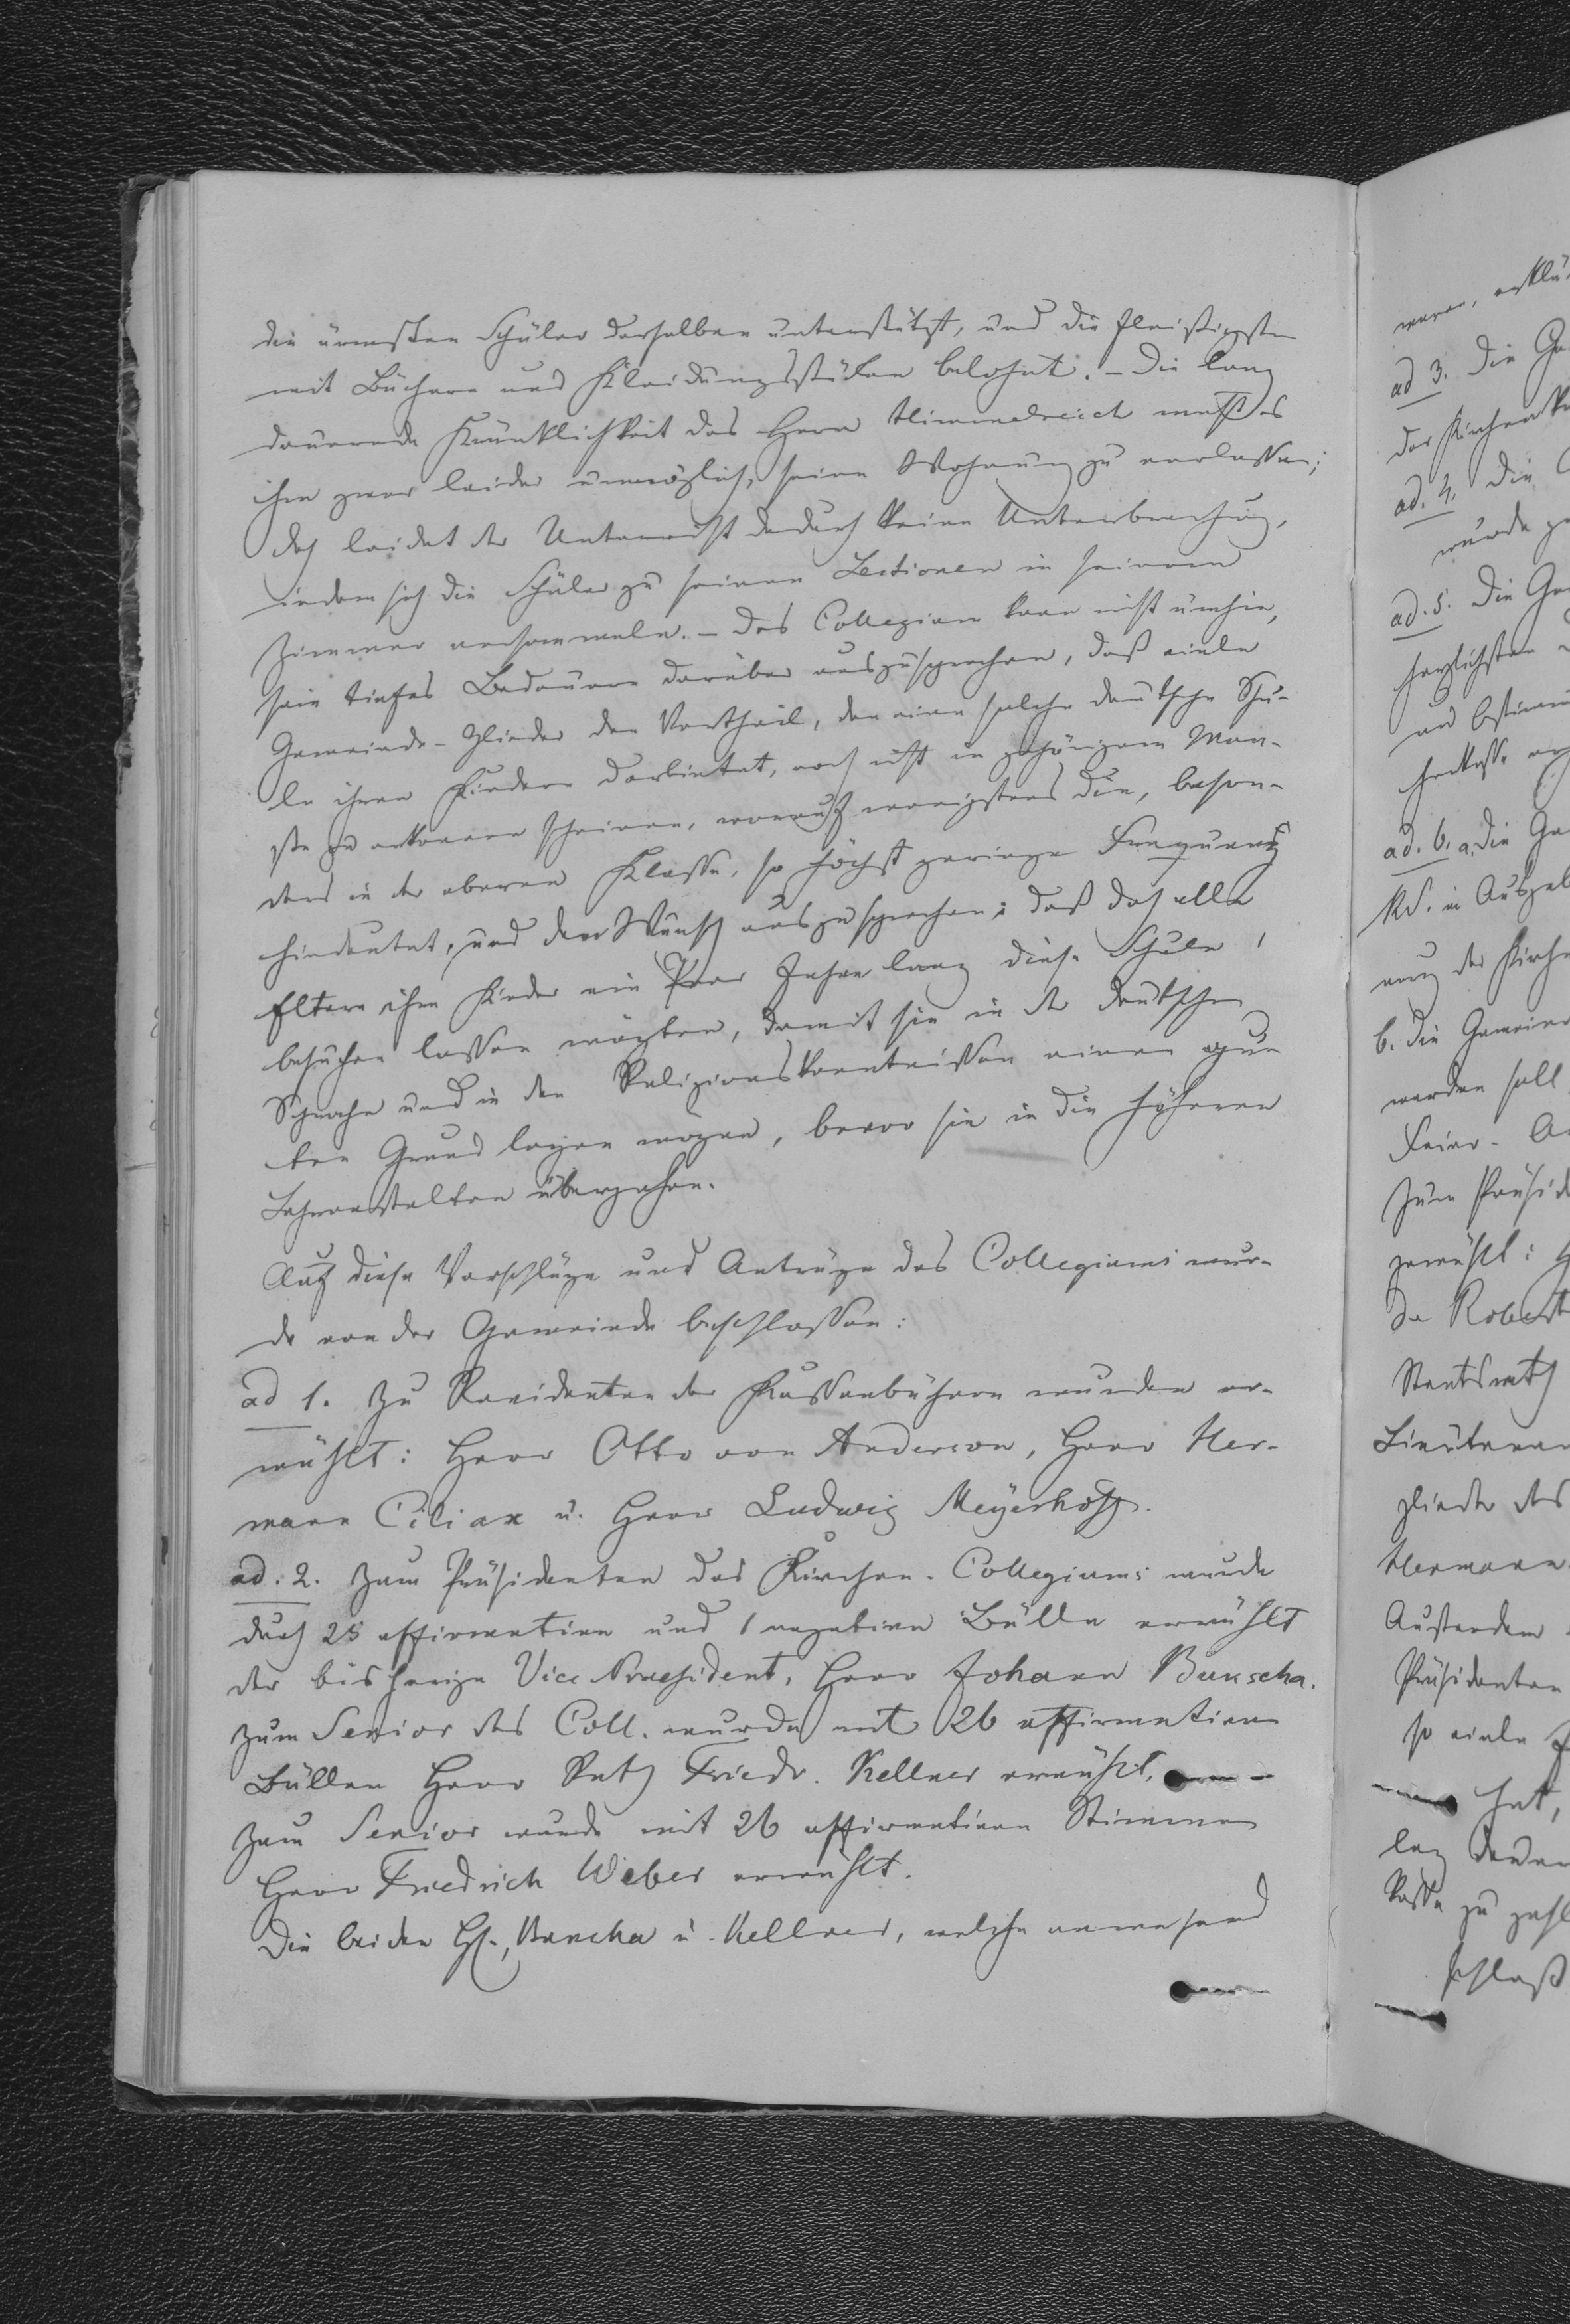 die ärmsten Schüler derselben unterstützt, und die fleißigsten
mit Büchern und Kleidungsstücken belohnt. – Die lang
dauernde Kränklichkeit des Herrn Himmelreich macht es
ihm zwar leider unmöglich, seine Wohnung zu verlassen;
doch leidet der Unterricht dadurch keine Unterbrechung,
indem sich die Schüler zu seinen Lectionen in seinem
Zimmer versammeln. – Das Collegium kann nicht umhin,
sein tiefes Bedauern darüber auszusprechen, daß viele
Gemeinde-Glieder den Vortheil, den eine solche deutsche Schu-
le ihren Kindern darbietet, noch nicht in gehörigem Maa-
ße zu erkennen scheinen, worauf wenigstens die, beson-
ders in der oberen Klasse, so höchst geringe Frequenz
hindeutet, und den Wunsch auszusprechen: daß doch alle
Eltern ihre Kinder ein Paar Jahre lang diese Schule
besuchen lassen mögten, damit sie in der deutschen
Sprache und in den Religionskenntnissen einen gu-
ten Grund legen mögen, bevor sie in die höheren
Lehranstalten übergehen.
Auf diese Vorschläge und Anträge des Collegiums wur-
de von der Gemeinde beschlossen:
ad 1. Zu Revidenten der Kassenbücher wurden er-
wählt: Herr Otto von Anderson, Herr Her-
mann Ciliax u. Herr Ludwig Meyerhoff.
ad. 2. Zum Präsidenten des Kirchen-Collegiums wurde
durch 25 affirmative und 1 negative Bälle erwählt
der bisherige Vice Praesident, Herr Johann Buxscha.
Zum Senior des Coll. wurde mit 26 affirmativen
Bällen Herr Rath Friedr. Kellner erwählt.
Zum Senior wurde mit 26 affirmativen Stimmen
Herr Friedrich Weber erwählt.
Die beiden HH., u. Kellner, welche anwesend
waren, erklä
ad 3. Die Ge
der Kirchen
ad. 4. Die
wurde
ad. 5. Die Ge
herzlichsten
und bestimm
ad. 6. a. Die Ge
der Kirche
b. Die Gemein
werden soll
Feier-
Zum Präsid
gewählt:
De Robert
Staatsrath
Lieutenan
glieder des
Hermann
Außerdem
Präsidenten
so viele
hat,
Kasse zu zahl